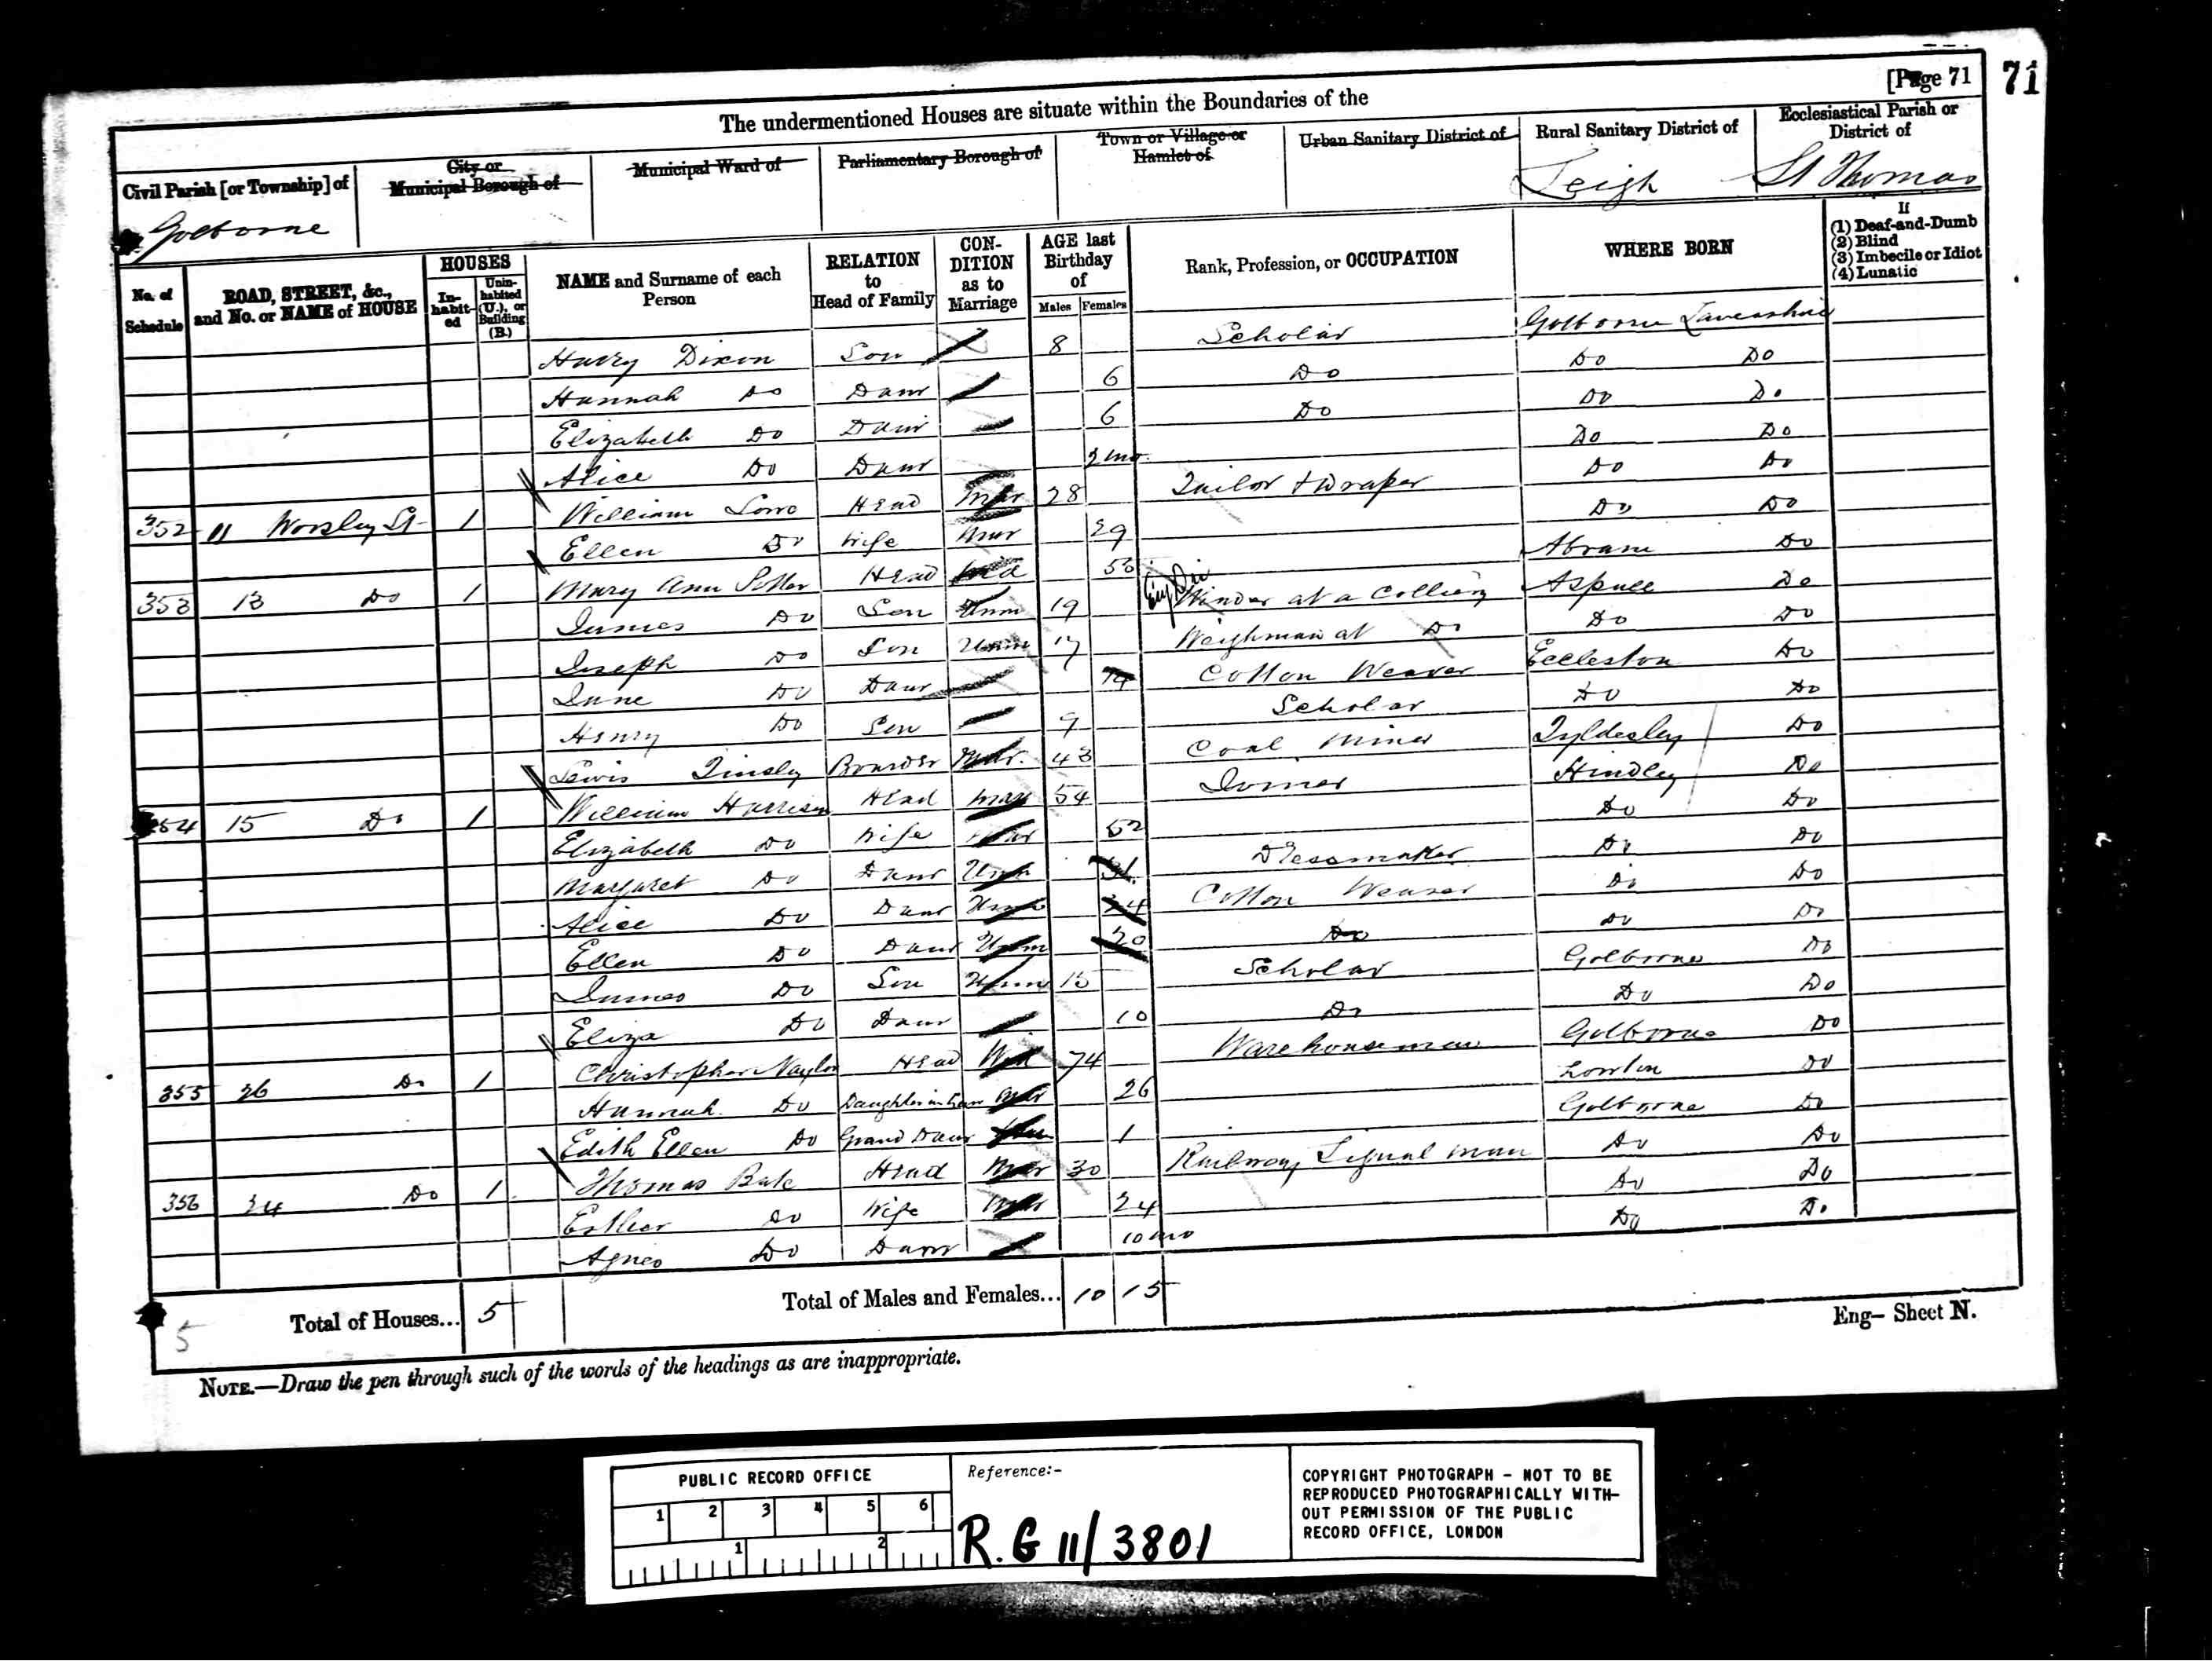 [Page 71
71
The undermentioned Houses are situate within the Boundaries of the
Civil Parish [or Township] of
City or Municipal Borough of
Municipal Ward of
Parliamentary Borough of
Town or Village or Hamlet of
Urban Sanitary District of
Rural Sanitary District of
Ecclesiastical Parish or District of
Golborne Leigh St Thomas
No. of Schedule
ROAD, STREET, &c., and No. or NAME of HOUSE
HOUSES
In-habit-ed
Unin-habited (U.), or Building (B.)
NAME and Surname of each Person
RELATION to Head of Family
CON-DITION as to Marriage
AGE last Birthday of
Males Females
Rank, Profession, or OCCUPATION
WHERE BORN
If
(1) Deaf-and-Dumb
(2) Blind
(3) Imbecile or Idiot
(4) Lunatic
Harry Dixon Son 8 Scholar Golborne Lancashire
Hannah Do Daur 6 Do Do Do
Elizabeth Do Daur 6 Do Do Do
Alice Do Daur 2 mo. Do Do
352 11 Worsley St 1 William Lowe Head Mar 28 Tailor & Draper Do Do
Ellen Do Wife Mar 29 Do Do
353 13 Do 1 Mary Ann Head Wid 53 Abram Do
James Do Son Unm 19 Winder at a Colliery Aspull Do
Joseph Do Son Unm 17 Weighman at Do Do Do
Jane Do Daur 14 Cotton Weaver Eccleston Do
Henry Do Son 9 Scholar Do Do
Lewis Tinsley Boarder Mar. 43 Coal Miner Tyldesley Do
354 15 Do 1 William Harrison Head Mar 54 Joiner Hindley Do
Elizabeth Do Wife Mar 52 Do Do
Margaret Do Daur Unm 31 Dressmaker Do Do
Alice Do Daur Unm 24 Cotton Weaver Do Do
Ellen Do Daur Unm 20 Do Do Do
James Do Son Unm 15 Scholar Golborne Do
Eliza Do Daur 10 Do Do Do
355 26 Do 1 Christopher Naylor Head Wid 74 Warehouseman Golborne Do
Hannah Do Daughter in law Mar 26 Lowton Do
Edith Ellen Do Grand Daur 1 Golborne Do
356 24 Do 1 Thomas Bate Head Mar 30 Railway Signal man Do Do
Esther Do Wife Mar 24 Do Do
Agnes Do Daur 10 mo Do Do
5 Total of Houses... 5 Total of Males and Females... 10 15
Eng– Sheet N.
NOTE.—Draw the pen through such of the words of the headings as are inappropriate.
PUBLIC RECORD OFFICE
1 2 3 4 5 6
1 2
Reference:-
R.G 11/3801
COPYRIGHT PHOTOGRAPH – NOT TO BE
REPRODUCED PHOTOGRAPHICALLY WITH–
OUT PERMISSION OF THE PUBLIC
RECORD OFFICE, LONDON